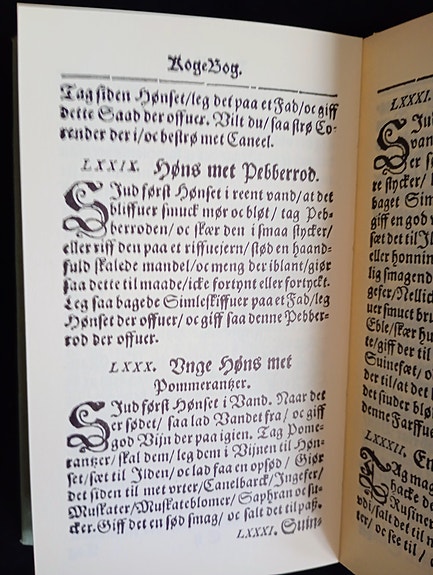 KogeBog.
Tag siden Hønset/leg det paa et Fad/oc giff
dette Saad der offuer. Vilt du/saa strø Co-
render der i/oc bestrø met Caneel.
LXXIX. Høns met Pebberrod.
SJud først Hønset i reent vand/at det
bliffuer smuck mør oc bløt/ tag Peb-
berroden/oc skær den i smaa stycker/
eller riff den paa et riffuejern/stød en haand-
fuld skalede mandel/oc meng der iblant/giør
saa dette til maade/icke fortynt eller fortyckt.
Leg saa bagede Simleskiffuer paa et Fad/leg
Hønset der offuer/ oc giff saa denne Pebber-
rod der offuer.
LXXX. Vnge Høns met
Pommerantzer.
SJud først Hønset i Vand. Naar det
er sødet/ saa lad Vandet fra/ oc giff
god Vijn der paa igien. Tag Pome-
rantzer/skal dem/leg dem i Vijnen til Høn-
set/sæt til Ilden/oc lad faa en opsød/ Giør
det siden til met vrter/Canelbarck/Ingefer/
Muskater/Muskateblomer/Saphran oc su-
cker. Giff det en sød smag/ oc salt det til paß.
LXXXI. Suins
LXXXI.
SJud
svan
der s
re stycker/
baget Simle
giff en god v
sæt det til Jl
eller honning
lig smagend
gefer/Nellick
uer smuct bru
Eble/skær hu
te/giff der til
Suinefæt/ o
der til/at det
det siuder bl
denne Farffu
LXXXII. En
TAg mag
hacke de
Rusiner
vdi/salt det til
ter/ oc see til /